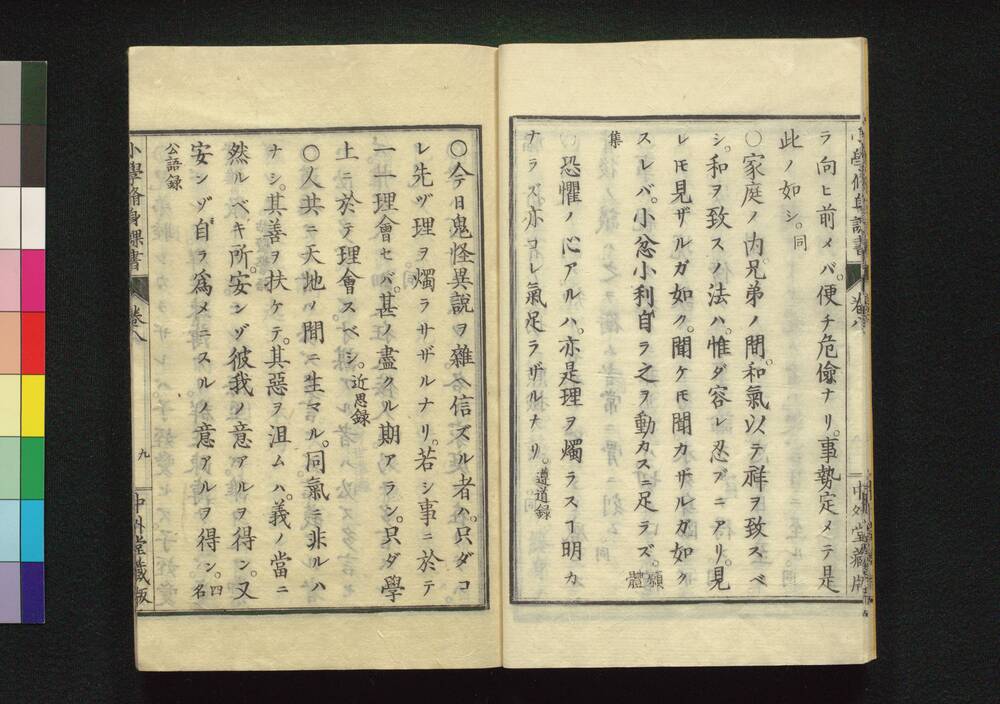 小學修身課書
卷八
中外堂藏版
ラ向ヒ前メバ。便チ危儉ナリ。事勢定メテ是
此ノ如シ。同
○家庭ノ内。兄弟ノ間。和氣以テ祥ヲ致スベ
シ。和ヲ致スノ法ハ。惟ダ容レ忍ブニアリ。見
レモ見ザルガ如ク。聞ケモ聞カザルガ如ク
スレバ。小忿小利自ラ之ヲ動カスニ足ラズ。願體
集
○恐懼ノ心アルハ。亦是理ヲ燭ラスヿ明カ
ナラズ。亦コレ氣足ラザルナリ。遵道録
○今日鬼怪異説ヲ雜ヘ信ズル者ハ。只ダコ
レ先ヅ理ヲ燭ラサザルナリ。若シ事ニ於テ
一一理會セバ。甚ノ盡クル期アラン。只ダ學
上ニ於テ理會スベシ。近思録
○人共ニ天地ノ間ニ生マル。同氣ニ非ルハ
ナシ。其善ヲ扶ケテ。其惡ヲ沮ムハ。義ノ當ニ
然ルベキ所。安ンゾ彼我ノ意アルヲ得ン。又
安ンゾ自ラ爲メニスルノ意アルヲ得ン。四名
公語録
小學脩身課書
卷八
九
中外堂藏版